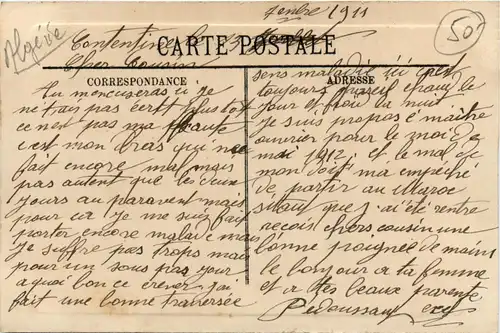 Algérie
50
7embre 1911
CARTE POSTALE
Cher Cousin
CORRESPONDANCE
ADRESSE
Tu mencuseras si je
ne t'ai pas ecrit plus tot
ce n'est pas ma faute
c'est mon bras qui me
fait encore mal mais
pas autant que les deux
jours au paravent mais
pour ca je me suis fait
porter encore malade mais
je souffre pas trops mais
pour un sous pas jour
a quoi bon ce crever j'ai
fait une bonne traversée
sens maladie ici c'est
toujours pareil chaud le
jour et froid la nuit
je suis propos é maitre
ouvrier pour le moi de
mai 1912, et le mal de
mon doit ma empeché
de partir au Maroc
sitaut que j'ai été rentré
recois chers cousin une
bonne poignée de mains
le bonjour a ta femme
et a tes beaux parents